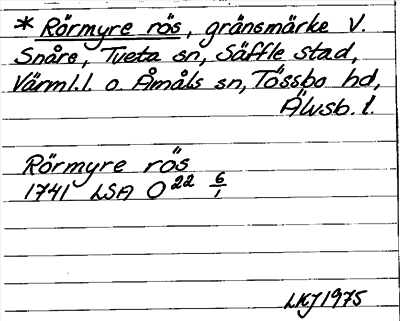 * Rörmyre rös, gränsmärke V.
Snåre, Tveta sn, Säffle stad,
Värml.l. o. Åmåls sn, Tössbo hd,
Älvsb. l.
Rörmyre rös
1741 LSA O 22 6/1
LKJ 1975